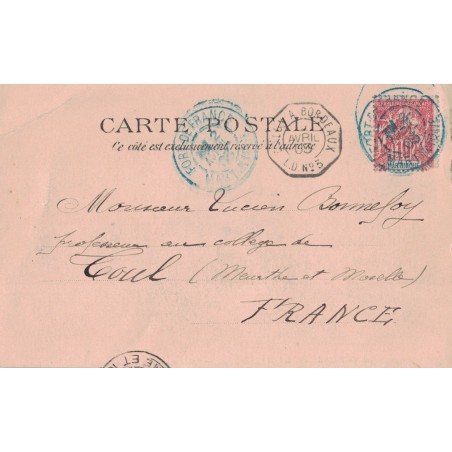 CARTE POSTALE
Ce côté est exclusivement réservé à l'adresse
FORT DE FRANCE
A BORDEAUX
AVRIL
L.D Nº5
Monsieur Lucien Bonnefoy
professeur au collège de
Toul (Meurthe et Moselle)
FRANCE